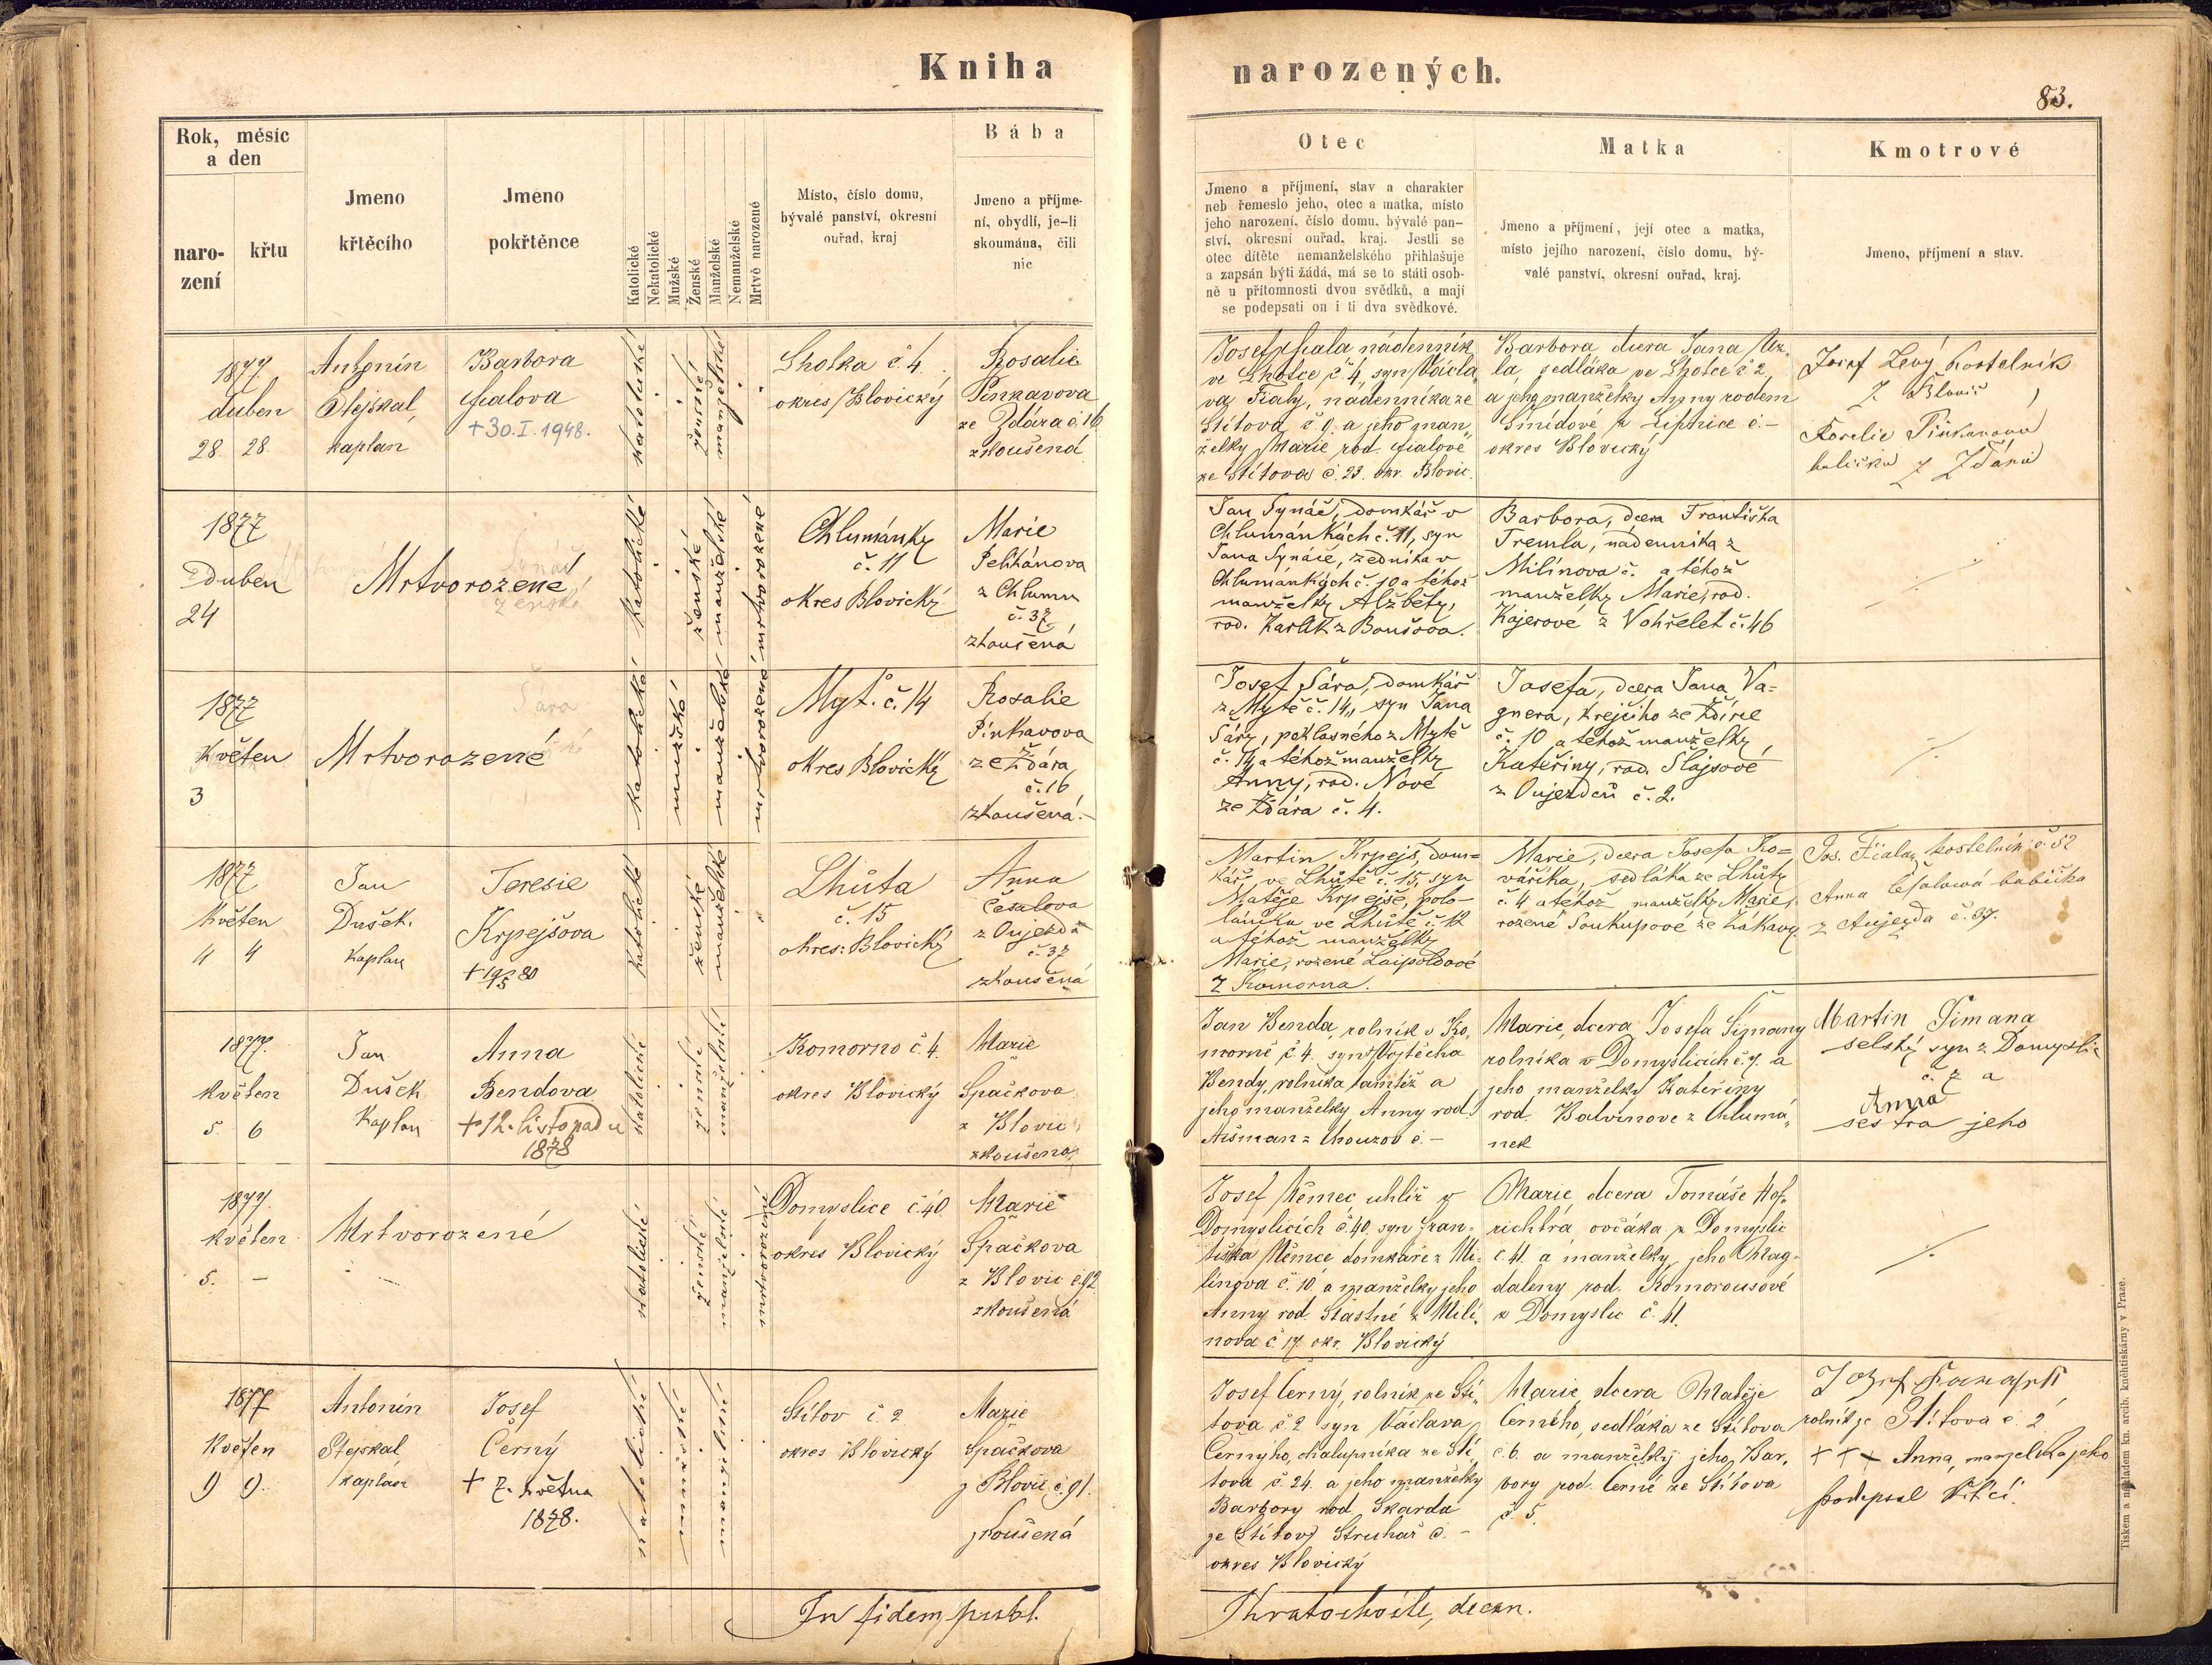 Kniha
narozených.
83.
Rok, měsíc
a den
naro-
zení
křtu
Jmeno
křtěcího
Jmeno
pokřtěnce
Katolické
Nekatolické
Mužské
Ženské
Manželské
Nemanželské
Mrtvě narozené
Místo, číslo domu,
bývalé panství, okresní
ouřad, kraj
Bába
Jmeno a příjme-
ní, obydlí, je-li
skoumána, čili
nic
Otec
Jmeno a příjmení, stav a charakter
neb řemeslo jeho, otec a matka, místo
jeho narození, číslo domu, bývalé pan-
ství, okresní ouřad, kraj. Jestli se
otec dítěte nemanželského přihlašuje
a zapsán býti žádá, má se to státi osob-
ně u přítomnosti dvou svědků, a mají
se podepsati on i ti dva svědkové.
Matka
Jmeno a příjmení, její otec a matka,
místo jejího narození, číslo domu, bý-
valé panství, okresní ouřad, kraj.
Kmotrové
Jmeno, příjmení a stav.
1877
duben
28. 28.
Antonín
Stejskal,
kaplan
Barbora
Fialova
+30.I.1948.
katolické
ženské
manželské
Lhotka č. 4.
okres Blovický
Rosalie
Pinkavova
ze Ždára č. 16
zkoušená
Josef Fiala nádenník
ve Lhotce č. 4, syn Václa„
va Fialy, nádenníka ze
Štítova č. 9. a jeho man„
želky Marie rod. Fialové
ze Štítova č. 23. okr. Blovic.
Barbora dcera Jana
la, sedláka ve Lhotce č 2.
a jeho manželky Anny rodem
Šmídové z Lipnice č. –
okres Blovický
Josef Levý kostelník
z Blovic
Rosalie Pinkavova
babička z Ždára
1877
Duben
24
Mrtvorozené
Synáč
ženské
katolické
ženské
manželské
mrtvorozené
Chlumánky
č. 11
okres Blovický
Marie
Pelikánova
z Chlumu
č. 37
zkoušená
Jan Synáč, domkář v
Chlumánkách č. 11, syn
Jana Synáče, zedníka v
Chlumánkách č. 10 a téhož
manželky Alžběty,
rod. Karlík z Boušova.
Barbora, dcera Františka
Tremla, nádenníka z
Milínova č. a téhož
manželky Marie, rod.
Kajerové z Vohřelet č. 46
1877
Květen
3
Mrtvorozené
Šára
katolické
mužské
manželské
mrtvorozené
Mýt. č. 14
okres Blovický
Rosalie
Pinkavova
ze Ždára
č. 16
zkoušená. –
Josef Šára, domkář
z Mýtě č. 14, syn Jana
Šáry, poklasného z Mýtě
č. 14 a téhož manželky
Anny, rod. Nové
ze Ždára č. 4.
Josefa, dcera Jana Va=
gnera, krejčího ze Ždírce
č. 10 a téhož manželky
Kateřiny, rod. Šlajsové
z Oujezdců č. 2.
1877
Květen
4 4
Jan
Dušek.
Kaplan
Teresie
Krpejšova
katolické
ženské
manželské
Lhůta
č. 15
okres: Blovický
Anna
Česalova
z Oujezda
č. 37
zkoušená
Martin Krpejš, dom=
kář ve Lhůtě č. 15, syn
Matěje Krpejše, polo-
láníka ve Lhůtě č. 12
a téhož manželky
Marie, rozené Laipoldové
z Komorna.
Marie, dcera Josefa Ko=
váříka, sedláka ze Lhůty
č. 4 a téhož manželky Marie,
rozené Soukupové ze Zákavy.
Jos. Fiala, kostelník č. 52
Anna Česalová babička
z Aujezda č. 37.
1877.
Květen
5. 6
Jan
Dušek
Kaplan
Anna
Bendova
+12. listopadu
1878
katolické
ženské
manželské
Komorno č. 4.
okres Blovický
Marie
Špačkova
z Blovic
zkoušená
Jan Benda, rolník v Ko„
morně č 4. syn Vojtěcha
Bendy, rolníka tamtéž a
jeho manželky Anny rod.
Aišman z Chouzov č. –
Marie, dcera Josefa Šimany
rolníka v Domyslicích č. 7. a
jeho manželky Kateřiny
rod. Balvínove z Chlumá„
nek
Martin Šimana
selský syn z Domyslic
č. 7 a
Anna
sestra jeho
1877.
květen
5. –
Mrtvorozené
katolické
ženské
manželské
mrtvorozené
Domyslice č. 40.
okres Blovický
Marie
Špačkova
z Blovic č. 92
zkoušená
Josef Němec, uhlíř v
Domyslicích č. 40, syn Fran-
tiška Němce domkáře z Mi-
línova č. 10 a manželky jeho
Anny rod. Šťastné z Milí„
nova č 17 okr. Blovický
Marie, dcera Tomáše Hof„
richtra ovčáka z Domyslic
č. 41. a manželky jeho Mag-
daleny rod. Komorousové
z Domyslic č. 41.
1877
Květen
9 9.
Antonín
Stejskal,
kaplan
Josef
Černý
+ 7. května
1878.
katolické
mužské
manželské
Štítov č. 2
okres Blovický
Marie
Špačkova
z Blovic č. 91.
zkoušená
Josef Černý, rolník ze Ští„
tova č 2 syn Václava
Černyho, chalupníka ze Ští„
tova č. 24. a jeho manželky
Barbory rod. Skarda
ze Štítov Struhař č. –
okres Blovický
Marie dcera Matěje
Černého, sedláka ze Štítova
č. 6. a manželky jeho Bar„
bory rod. Černé ze Štítova
č. 5.
Jozef
rolník ze Štítova č. 2
+ + + Anna, manželka jeho
podepsal
In fidem publ.
Kratochvíle, decan.
Tiskem a nákladem kn. arcib. kněhtiskárny v Praze.